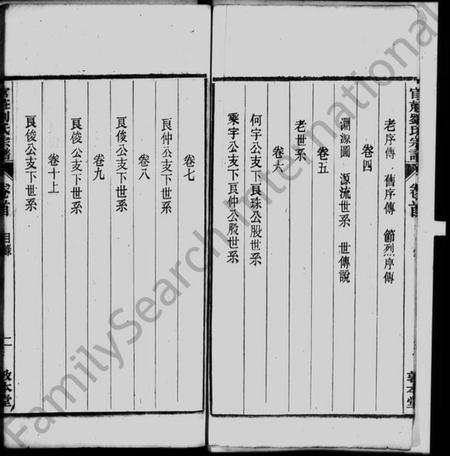 官莊劉氏宗譜
卷首
敦本堂
老序傳 舊序傳 節烈序傳
卷四
淵源圖 源流世系 世傳說
卷五
老世系
卷六
何字公支下良珠公股世系
乘字公支下良仲公股世系
卷七
良仲公支下世系
卷八
良俊公支下世系
卷九
良俊公支下世系
卷十上
良俊公支下世系
官莊劉氏宗譜
卷首
目錄
敦本堂
FamilySearch International